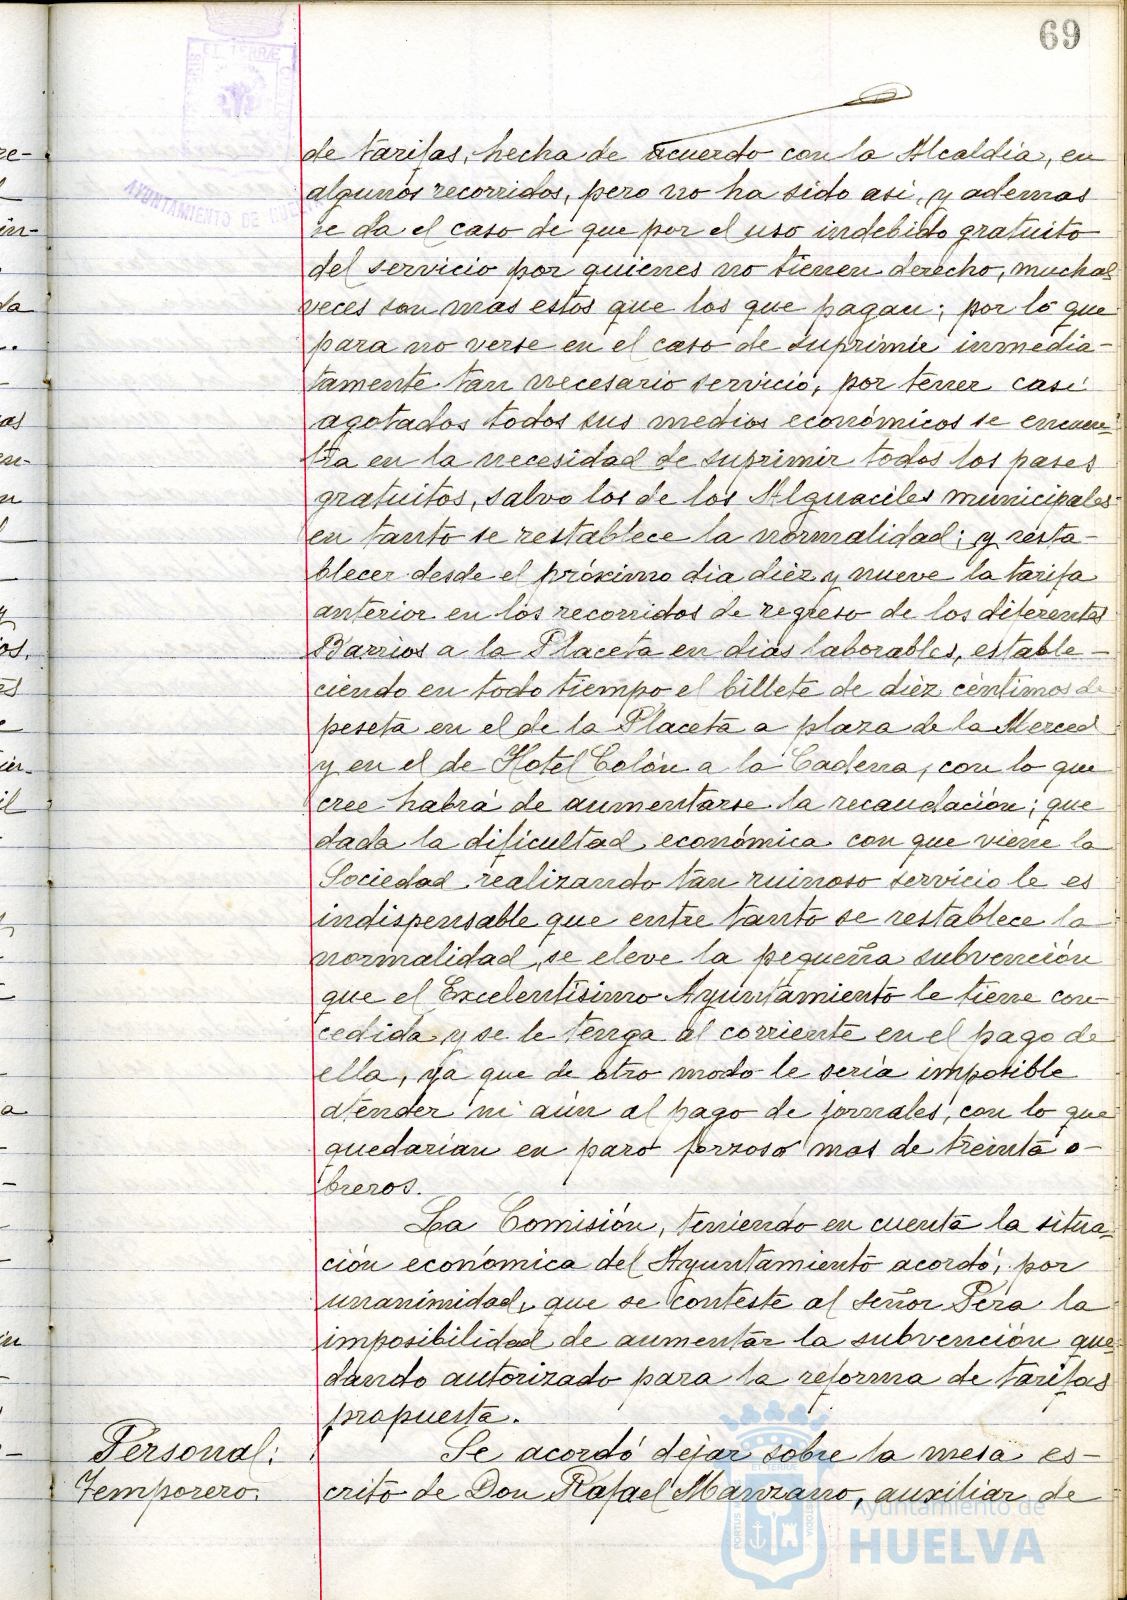 69
de tarifas, hecha de acuerdo con la Alcaldía, en
algunos recorridos, pero no ha sido asi, y ademas
se da el caso de que por el uso indebido gratuito
del servicio por quienes no tienen derecho, muchas
veces son mas estos que los que pagan; por lo que
para no verse en el caso de suprimir inmedia-
tamente tan necesario servicio, por tener casi
agotados todos sus medios económicos se encuen-
tra en la necesidad de suprimir todos los pases
gratuitos, salvo los de los Alguaciles municipales
en tanto se restablece la normalidad; y resta-
blecer desde el próximo dia diez y nueve la tarifa
anterior en los recorridos de regreso de los diferentes
Barrios a la Placeta en dias laborables, estable-
ciendo en todo tiempo el billete de diez céntimos de
peseta en el de la Placeta a plaza de la Merced
y en el de Hotel Colón a la Cadena, con lo que
cree habrá de aumentarse la recaudación; que
dada la dificultad económica con que viene la
Sociedad realizando tan ruinoso servicio le es
indispensable que entre tanto se restablece la
normalidad, se eleve la pequeña subvención
que el Excelentísimo Ayuntamiento le tiene con-
cedida y se le tenga al corriente en el pago de
ella, ya que de otro modo le sería imposible
atender ni aún al pago de jornales, con lo que
quedarían en paro forzoso mas de treinta o-
breros.
La Comisión, teniendo en cuenta la situa-
ción económica del Ayuntamiento acordó, por
unanimidad, que se conteste al señor Pera la
imposibilidad de aumentar la subvención que-
dando autorizado para la reforma de tarifas
propuesta.
Personal:
Temporero.
Se acordó dejar sobre la mesa es-
crito de Don Rafael Manzano, auxiliar de
AYUNTAMIENTO DE
Ayuntamiento de
HUELVA